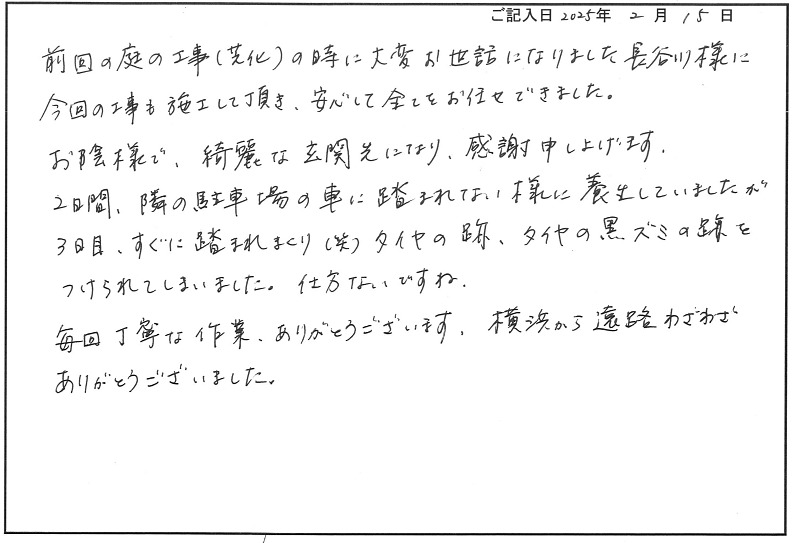 ご記入日 2025年 2月 15日
前回の庭の工事(芝化)の時に大変お世話になりました長谷川様に
今回の工事も施工して頂き、安心して全てをお任せできました。
お陰様で、綺麗な玄関先になり、感謝申し上げます。
2日間、隣の駐車場の車に踏まれてない様に養生していましたが
3日目、すぐに踏まれまくり(笑)タイヤの跡、タイヤの黒ズミの跡を
つけられてしまいました。仕方ないですね。
毎回丁寧な作業、ありがとうございます。横浜から遠路わざわざ
ありがとうございました。